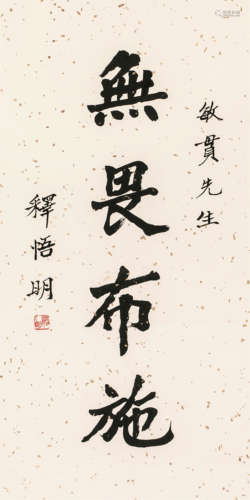 敏貫先生
無畏布施
釋悟明